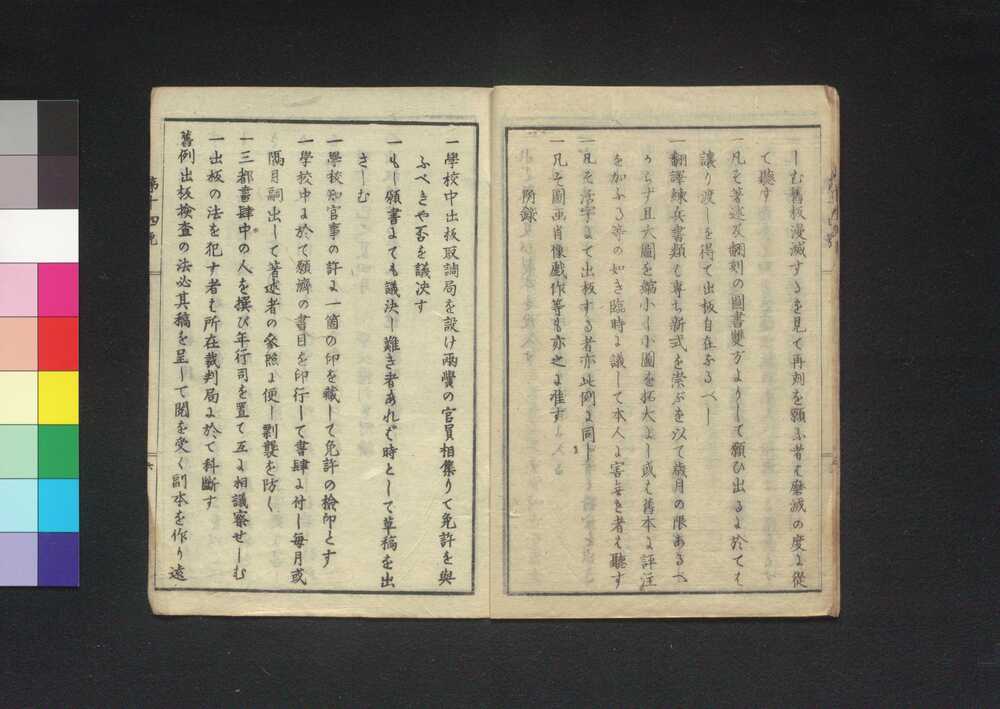 しむ舊板漫滅するを見て再刻を願ふ者は磨滅の度に從
て聽す
一凡そ著述及翻刻の圖書雙方よりして願ひ出るに於ても
讓り渡しを得て出板自在なるべし
一翻譯練兵書類は専ら新式を崇ぶを以て歳月の限あるべ
からず且大圖を縮小し小圖を拓大にし或は舊本に評注
を加ふる等の如き臨時に議して本人に害無き者は聽す
一凡そ活字にて出板する者亦此例に同し
一凡そ圖画肖像戯作等も亦之に准す
附録
一學校中出板取調局を設け兩黌の官員相集りて免許を與
ふべきや否を議决す
一もし願書にても議決し難き者あれば時として草稿を出
さしむ
一學校知官事の許に一箇の印を藏して免許の檢印とす
一學校中に於て願濟の書目を印行して書肆に付し毎月或
隔月嗣出して著述者の參照に便し剽襲を防く
一三都書肆中の人を撰び年行司を置て互に相議察せしむ
一出板の法を犯す者は所在裁判局に於て科斷す
舊例出板檢査の法必其稿を呈して閲を受く副本を作り遠
第十四號
六